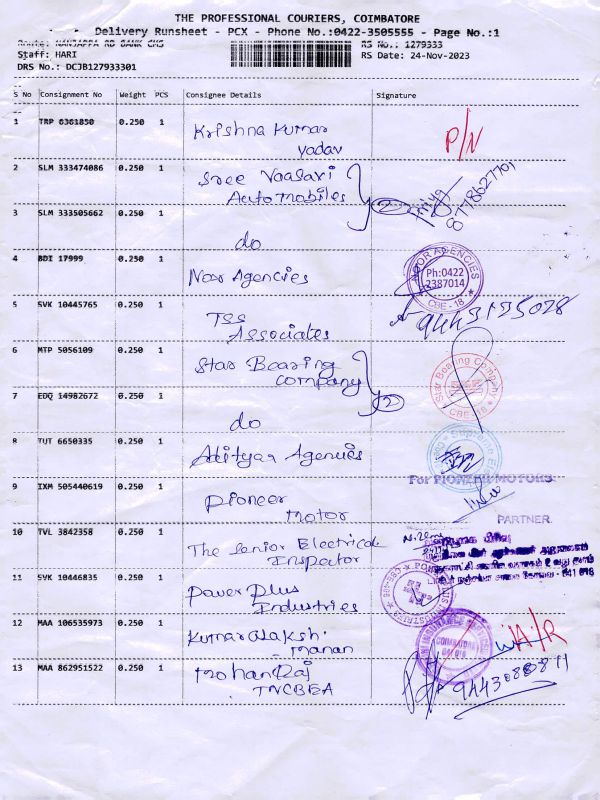 THE PROFESSIONAL COURIERS, COIMBATORE
Delivery Runsheet - PCX - Phone No.:0422-3505555 - Page No.:1
Route: NANJAPPA RD BANK CMS RS No.: 1279333
Staff: HARI RS Date: 24-Nov-2023
DRS No.: DCJB127933301
S No Consignment No Weight PCS Consignee Details Signature
1 TRP 6361850 0.250 1 Krishna Kumar
Yadav P/N
2 SLM 333474086 0.250 1 Sree Vaasavi
Automobiles 2 Priya 8778627701
3 SLM 333505662 0.250 1 do
4 BDI 17999 0.250 1 Noor Agencies NOOR AGENCIES
Ph:0422
2387014
CBE - 18
5 SVK 10445765 0.250 1 TSS
Associates 9443135028
6 MTP 5056109 0.250 1 Star Bearing
Company 2 Star Bearing Company
CBE - 18
7 EDQ 14982672 0.250 1 do
8 TUT 6650335 0.250 1 Adityar Agencies
9 IXM 505440619 0.250 1 Pioneer
Motor For PIONEER MOTORS
PARTNER.
10 TVL 3842358 0.250 1 The Senior Electrical
Inspector
11 SVK 10446835 0.250 1 Power Plus
Industries
12 MAA 106535973 0.250 1 Kumaralakshi
Manan A/R
COIMBATORE
641 018
13 MAA 862951522 0.250 1 Mohanraj
TNCBEA